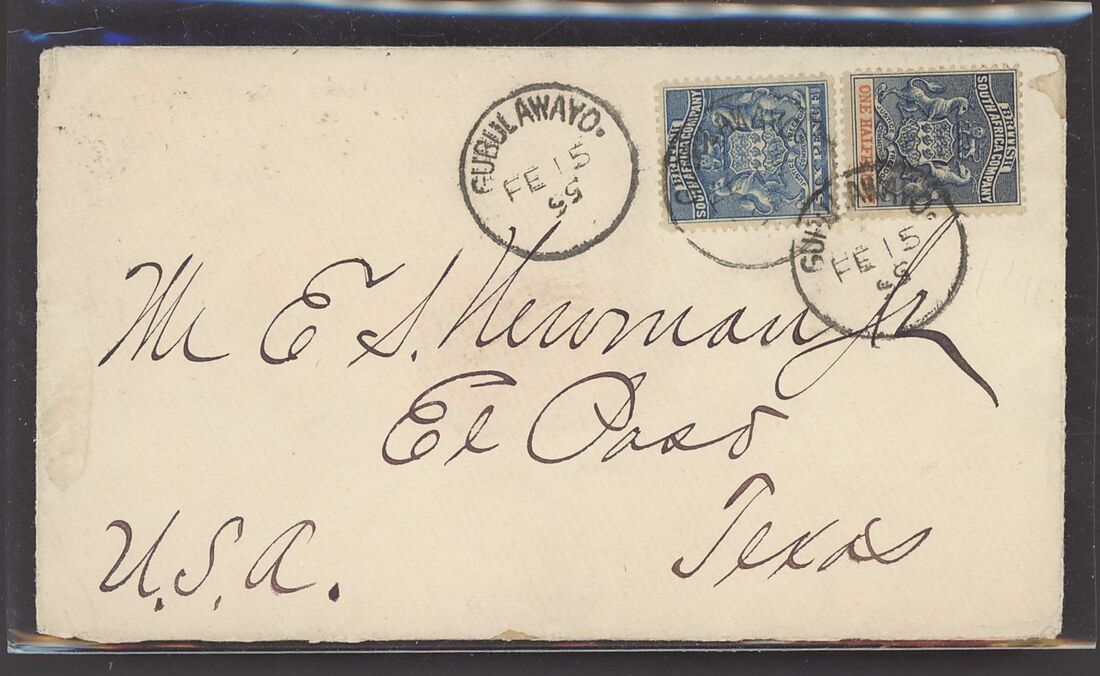 GUBULAWAYO.
FE 15
95
BRITISH
SOUTH AFRICA COMPANY
SIX PENCE
BRITISH
SOUTH AFRICA COMPANY
ONE HALF
FE 15
95
Mr E. S. Newman Jr
El Paso
Texas
U.S.A.